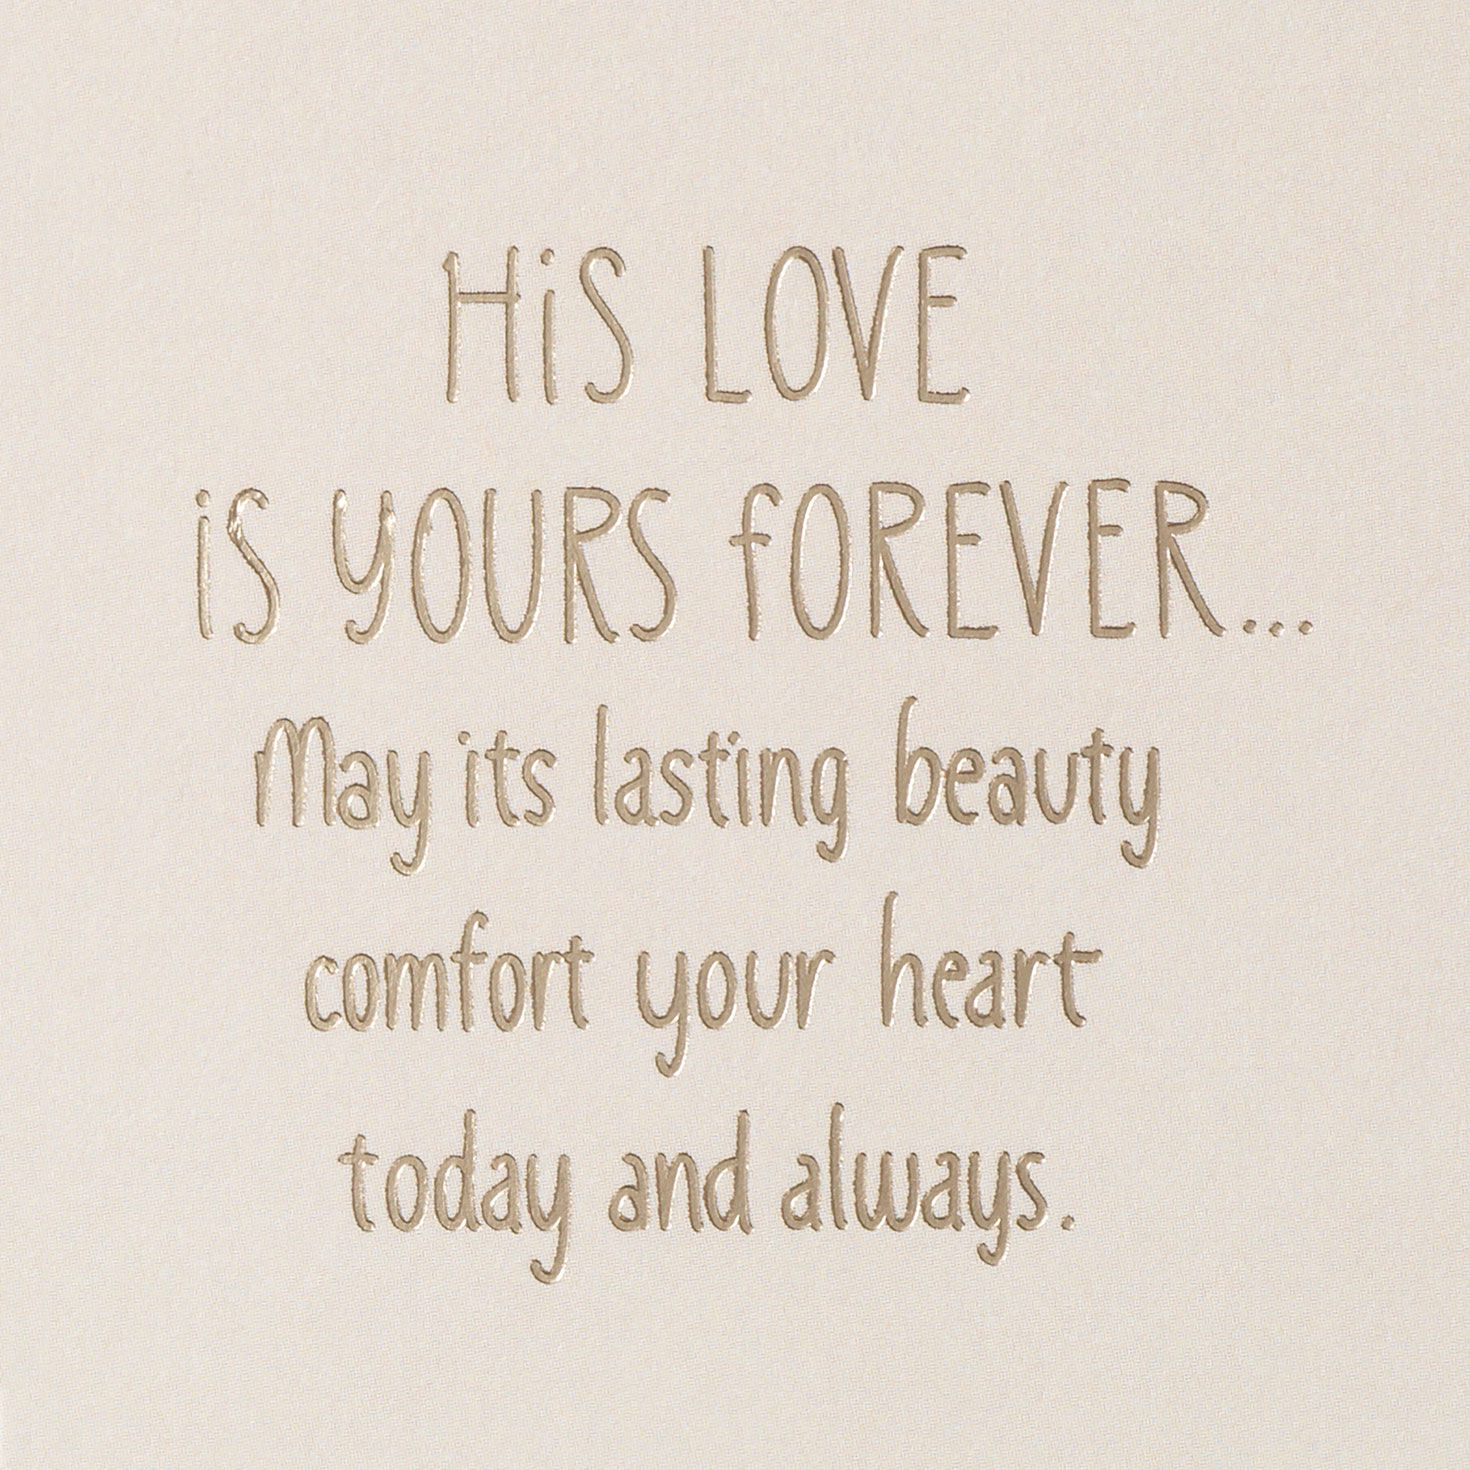 HiS LOVE
iS YOURS FOREVER...
May its lasting beauty
comfort your heart
today and always.